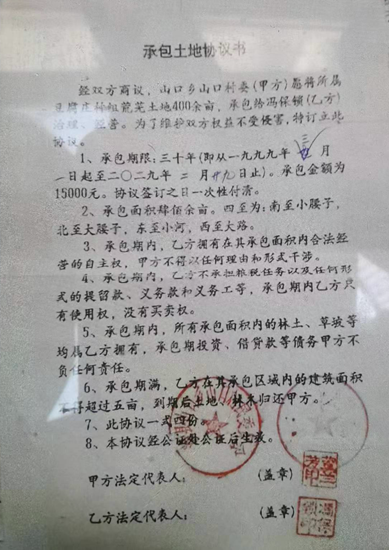 承包土地协议书
经双方商议，山口乡山口村委（甲方）愿将所属
荒芜土地400余亩，承包给冯保锁（乙方）
治理、经营。为了维护双方权益不受侵害，特订立此
协议。
1、承包期限：三十年（即从一九九九年三月
一日起至二〇二九年二月廿九日止）。承包金额为
15000元。协议签订之日一次性付清。
2、承包面积肆佰余亩。四至为：南至小腰子，
北至大腰子，东至小河，西至大路。
3、承包期内，乙方拥有在其承包面积内合法经
营的自主权，甲方不得以任何理由和形式干涉。
4、承包期内，乙方不承担粮税任务以及任何形
式的提留款、义务款和义务工等，承包期内乙方只
有使用权，没有买卖权。
5、承包期内，所有承包面积内的林土、草坡等
均属乙方拥有，承包期投资、借贷款等债务甲方不
负任何责任。
6、承包期满，乙方在其承包区域内的建筑面积
不得超过五亩，到期后土地、林木归还甲方。
7、此协议一式四份。
8、本协议经公证处公证后生效。
甲方法定代表人： （盖章）
乙方法定代表人： （盖章）